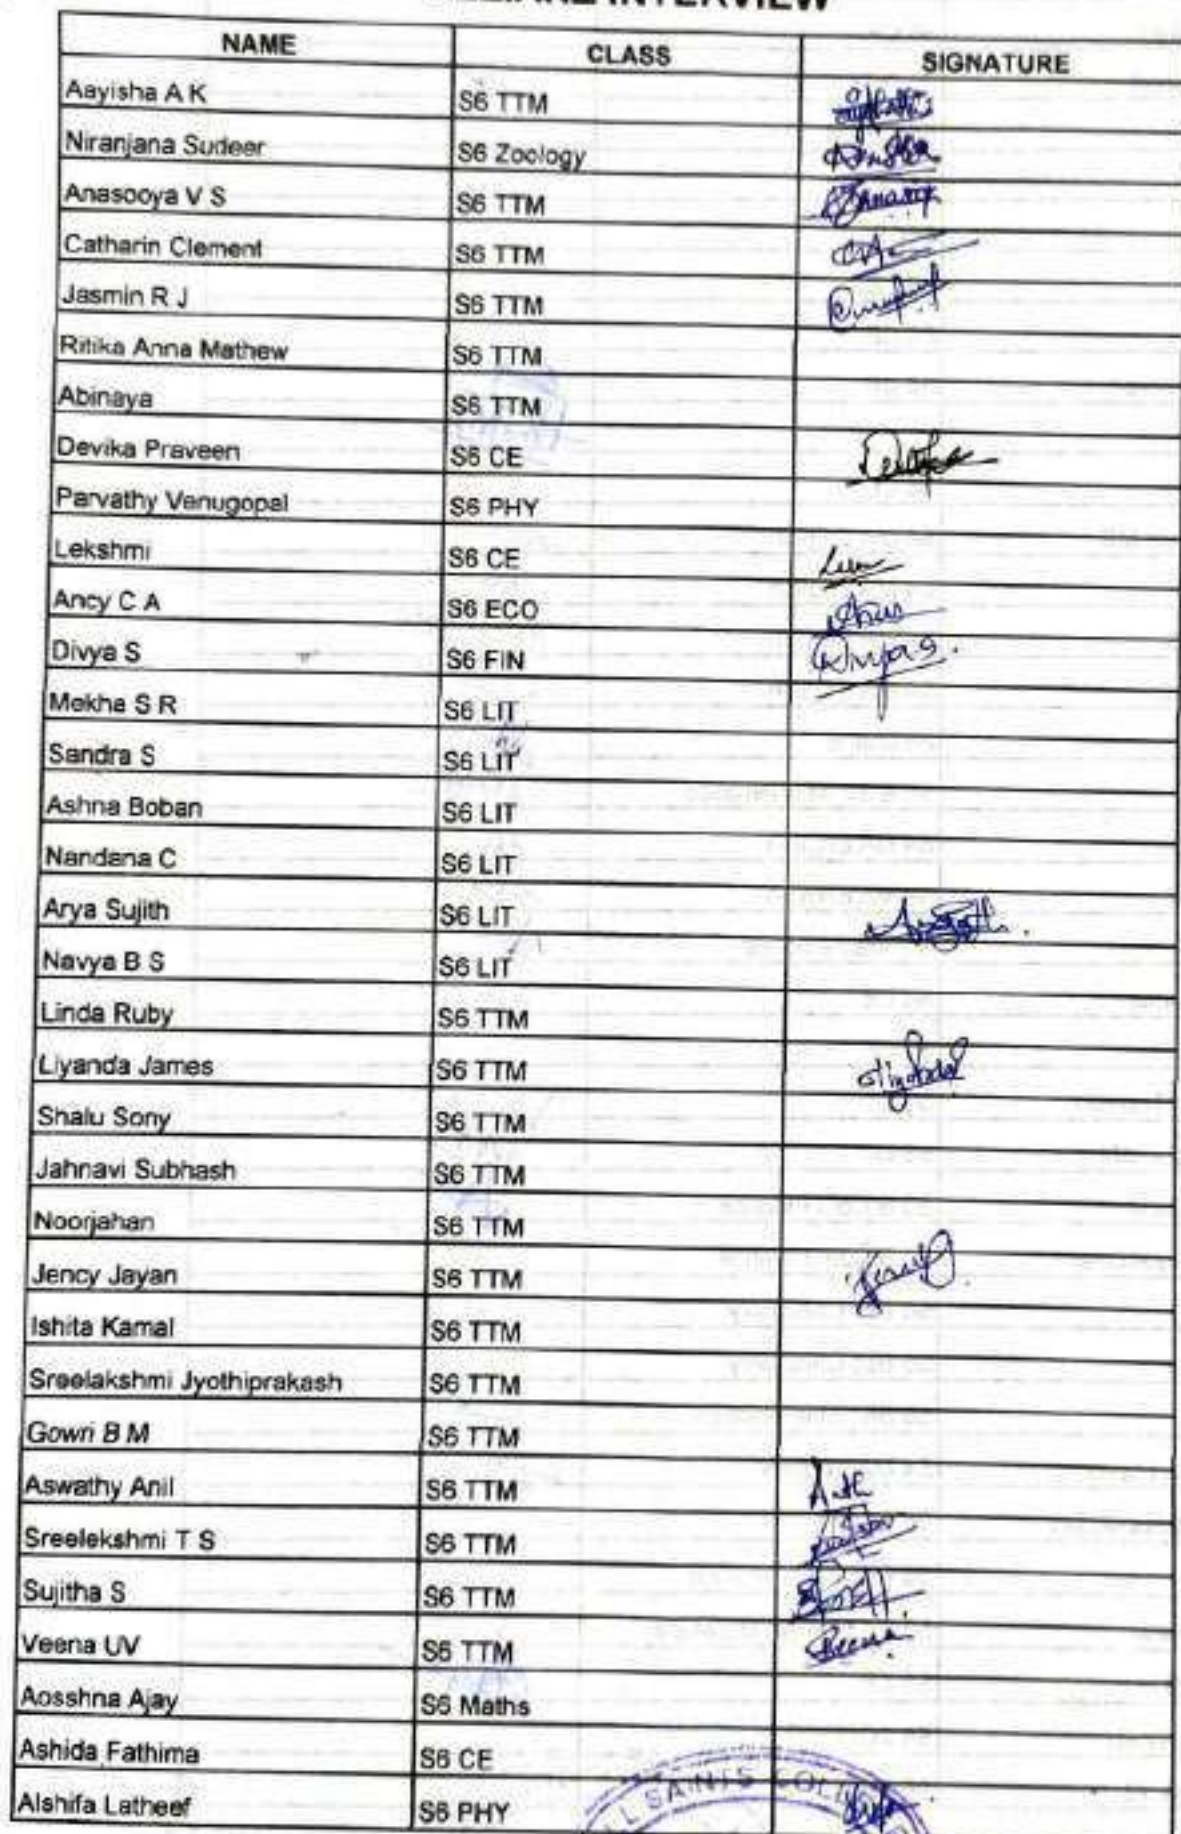 INTERVIEW
NAME CLASS SIGNATURE
Aayisha A K S6 TTM
Niranjana Sudeer S6 Zoology
Anasooya V S S6 TTM
Catharin Clement S6 TTM
Jasmin R J S6 TTM
Ritika Anna Mathew S6 TTM
Abinaya S6 TTM
Devika Praveen S6 CE
Parvathy Venugopal S6 PHY
Lekshmi S6 CE
Ancy C A S6 ECO
Divya S S6 FIN Divya S.
Mekha S R S6 LIT
Sandra S S6 LIT
Ashna Boban S6 LIT
Nandana C S6 LIT
Arya Sujith S6 LIT
Navya B S S6 LIT
Linda Ruby S6 TTM
Liyanda James S6 TTM
Shalu Sony S6 TTM
Jahnavi Subhash S6 TTM
Noorjahan S6 TTM
Jency Jayan S6 TTM
Ishita Kamal S6 TTM
Sreelakshmi Jyothiprakash S6 TTM
Gowri B M S6 TTM
Aswathy Anil S6 TTM
Sreelekshmi T S S6 TTM
Sujitha S S6 TTM
Veena UV S6 TTM Veena
Aosshna Ajay S6 Maths
Ashida Fathima S6 CE
Alshifa Latheef S6 PHY
SAINTS